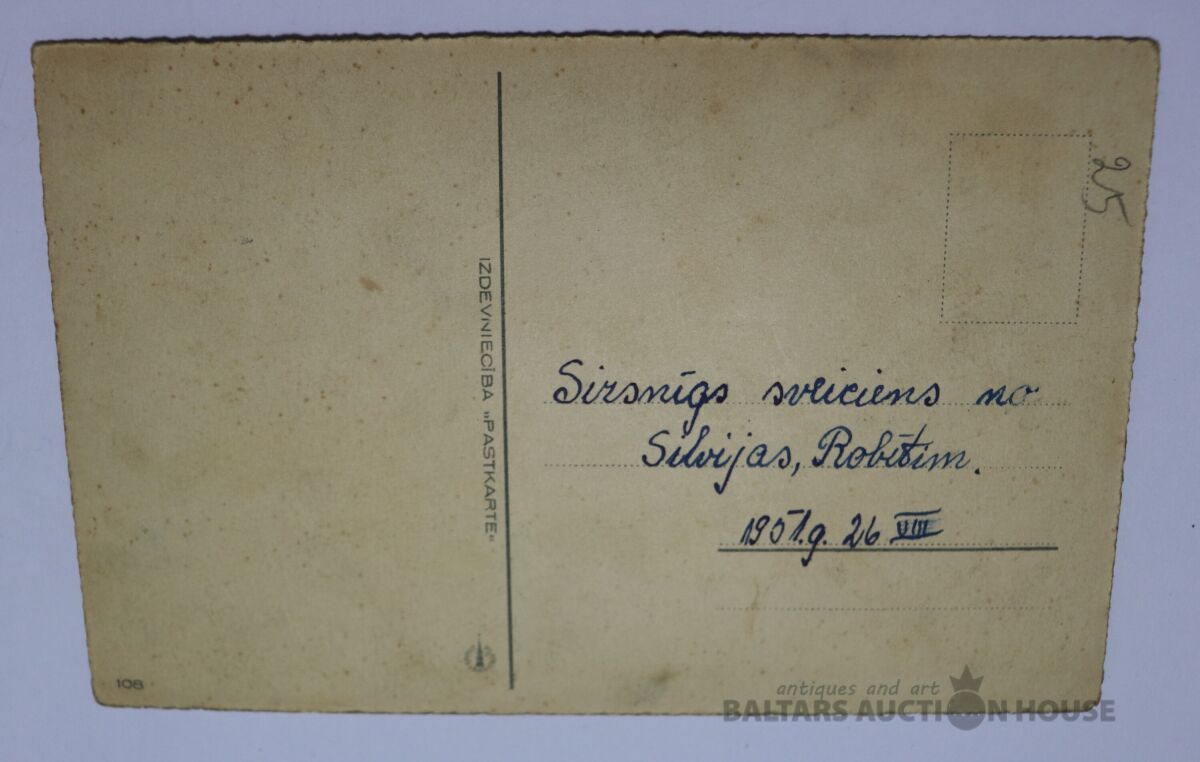 25
IZDEVNIECĪBA „PASTKARTE“
Sirsnīgs sveiciens no
Silvijas, Robītim.
1951.g. 26 VIII
108
antiques and art
BALTARS AUCTION HOUSE